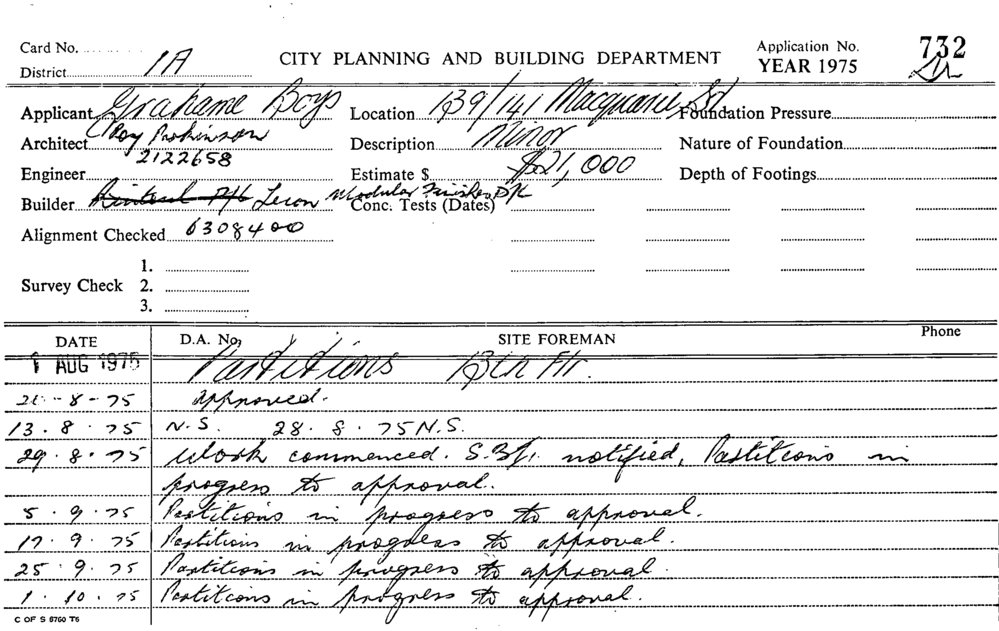 Card No.
CITY PLANNING AND BUILDING DEPARTMENT
Application No. 732
District 1A
YEAR 1975
Applicant Grahame Boys Location 139/141 Macquarie St Foundation Pressure
Architect Roy Robinson Description Minor Nature of Foundation
2122658
Engineer Estimate $ $21,000 Depth of Footings
Builder P/L Modular Finishes P/L Conc. Tests (Dates)
Alignment Checked 6308400
1.
Survey Check 2.
3.
DATE D.A. No. SITE FOREMAN Phone
1 AUG 1975 Partitions 13th Flr.
-8-75 approved.
13.8.75 N.S. 28.8.75 N.S.
29.8.75 Work commenced. notified, Partitions in
progress to approval.
5.9.75 Partitions in progress to approval.
17.9.75 Partitions in progress to approval.
25.9.75 Partitions in progress to approval.
1.10.75 Partitions in progress to approval.
C OF S 6760 T6